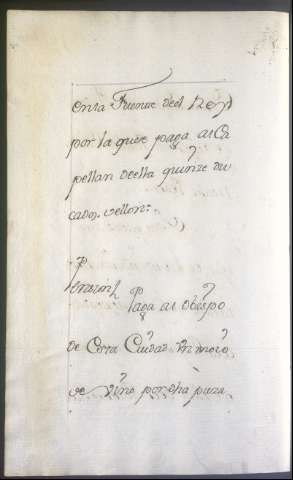 en la Fuente del Rey
por la que paga al Ca
pellan de ella quinze du
cados vellon:
Paga al obispo
de esta Ciudad Un moio
de vino por dha pieza